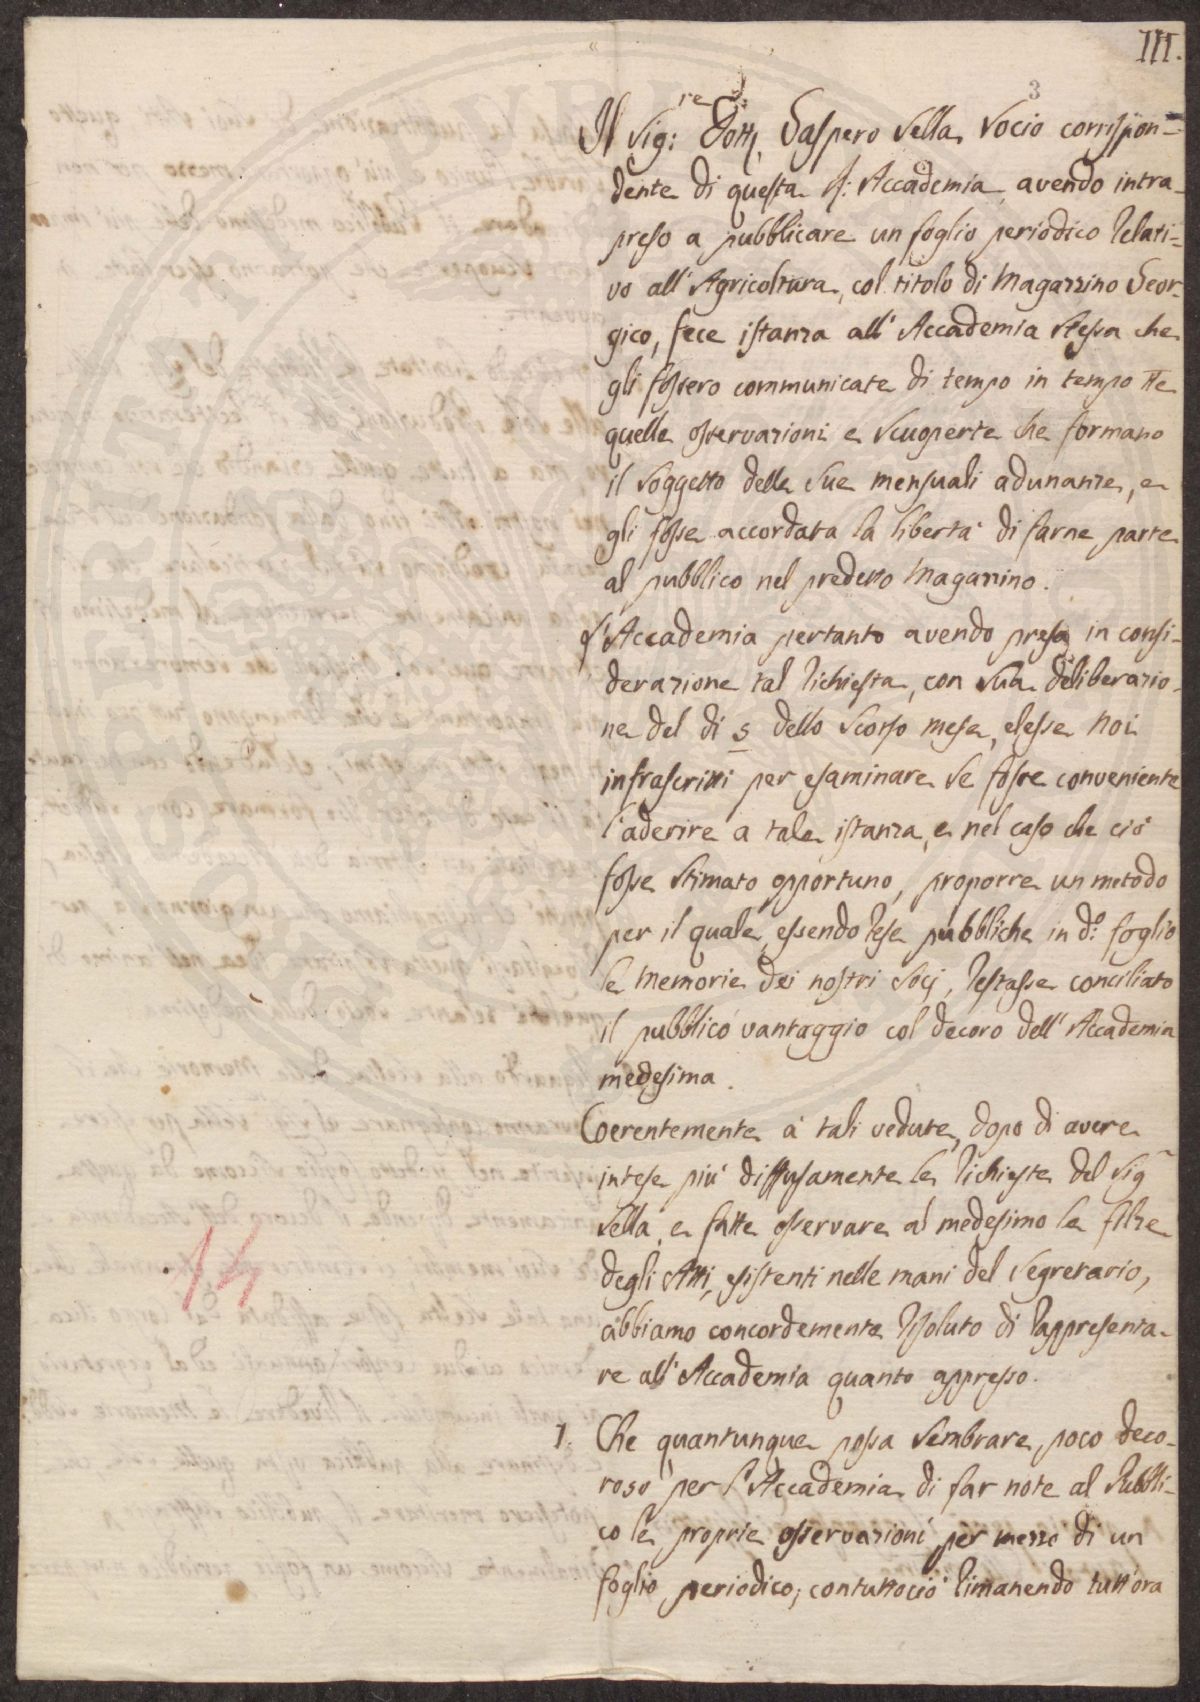 III.
3
Il Sig:re Dott: Gaspero Sella Socio corrispon-
dente di questa R: Accademia, avendo intra-
preso a pubblicare un foglio periodico relati-
vo all'Agricoltura, col titolo di Magazzino Geor-
gico, fece istanza all'Accademia stessa che
gli fossero communicate di tempo in tempo tte
quelle osservazioni e scuoperte che formano
il soggetto delle sue mensuali adunanze, e
gli fosse accordata la libertà di farne parte
al pubblico nel predetto Magazzino.
L'Accademia pertanto avendo presa in consi-
derazione tal richiesta, con sua deliberazio-
ne del dì 5 dello scorso mese, elesse noi
infrascritti per esaminare se fosse conveniente
l'aderire a tale istanza, e nel caso che ciò
fosse stimato opportuno, proporre un metodo
per il quale, essendo rese pubbliche in do: foglio
le memorie dei nostri Socj, restasse conciliato
il pubblico vantaggio col decoro dell'Accademia
medesima.
Coerentemente a tali vedute, dopo di avere
intese più diffusamente le richieste del Sig
Sella, e fatte osservare al medesimo le filze
degli Atti, esistenti nelle mani del Segretario,
abbiamo concordemente risoluto di rappresenta-
re all'Accademia quanto appresso.
1. Che quantunque possa sembrare poco deco-
roso per l'Accademia di far note al Pubbli-
co le proprie osservazioni per mezzo di un
foglio periodico; contuttociò rimanendo tutt'ora
14